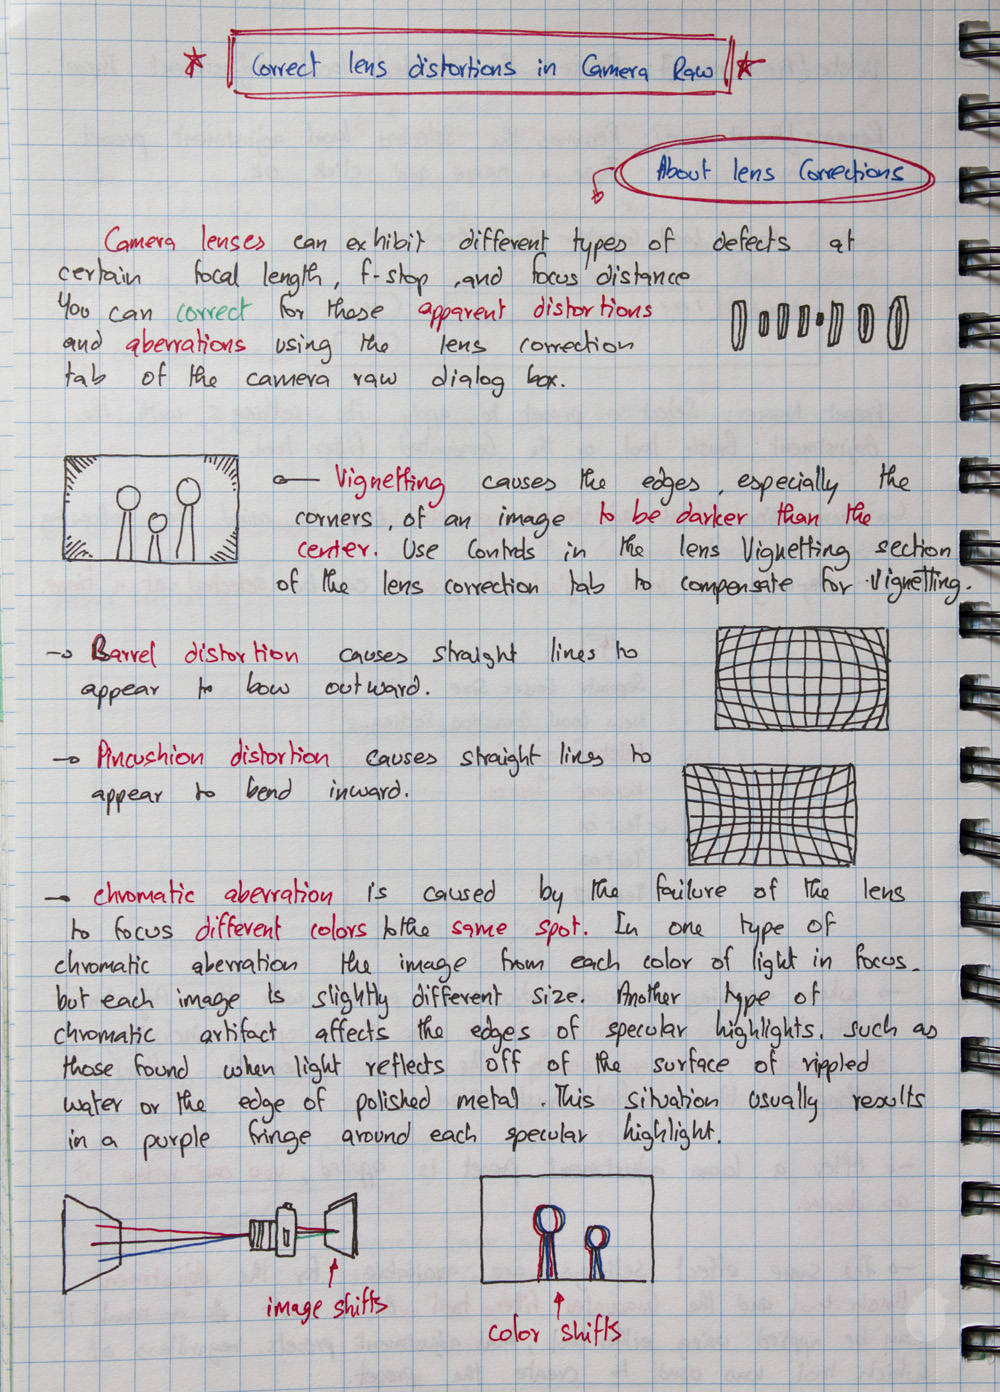 Correct lens distortions in Camera Raw
About lens Corrections
Camera lenses can exhibit different types of defects at
certain focal length, f-stop, and focus distance
You can correct for these apparent distortions
and aberrations using the lens correction
tab of the camera raw dialog box.
Vignetting causes the edges, especially the
corners, of an image to be darker than the
center. Use Controls in the lens Vignetting section
of the lens correction tab to compensate for vignetting.
Barrel distortion causes straight lines to
appear to bow outward.
Pincushion distortion causes straight lines to
appear to bend inward.
chromatic aberration is caused by the failure of the lens
to focus different colors to the same spot. In one type of
chromatic aberration the image from each color of light in focus.
but each image is slightly different size. Another type of
chromatic artifact affects the edges of specular highlights. such as
those found when light reflects off of the surface of rippled
water or the edge of polished metal. This situation usually results
in a purple fringe around each specular highlight.
image shifts
color shifts